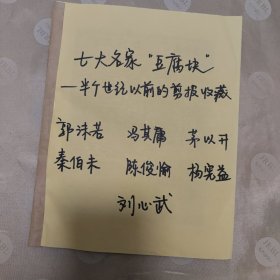 七大名家“豆腐块”
—半个世纪以前的剪报收藏
郭沫若 冯其庸 茅以升
秦伯未 陈俊愉 杨宪益
刘心武